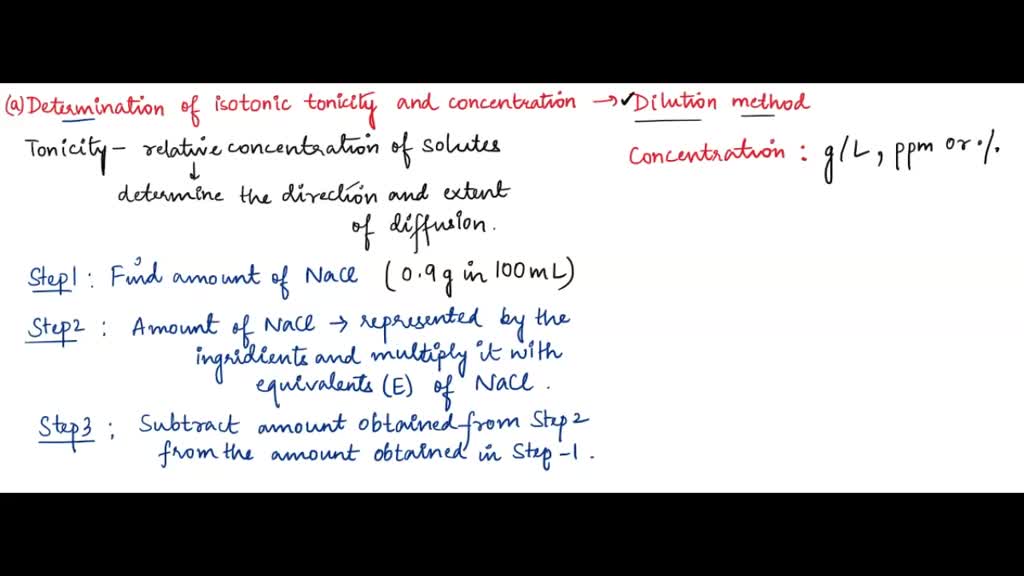 (a) Determination of isotonic tonicity and concentration → ✓Dilution method
Tonicity - relative concentration of solutes
↓
determine the direction and extent
of diffusion.
Concentration : g/L, ppm or %.
Step1 : Find amount of NaCl (0.9g in 100mL)
Step2 : Amount of NaCl → represented by the
ingridients and multiply it with
equivalents (E) of NaCl.
Step3 ; Subtract amount obtained from Step2
from the amount obtained in Step-1.